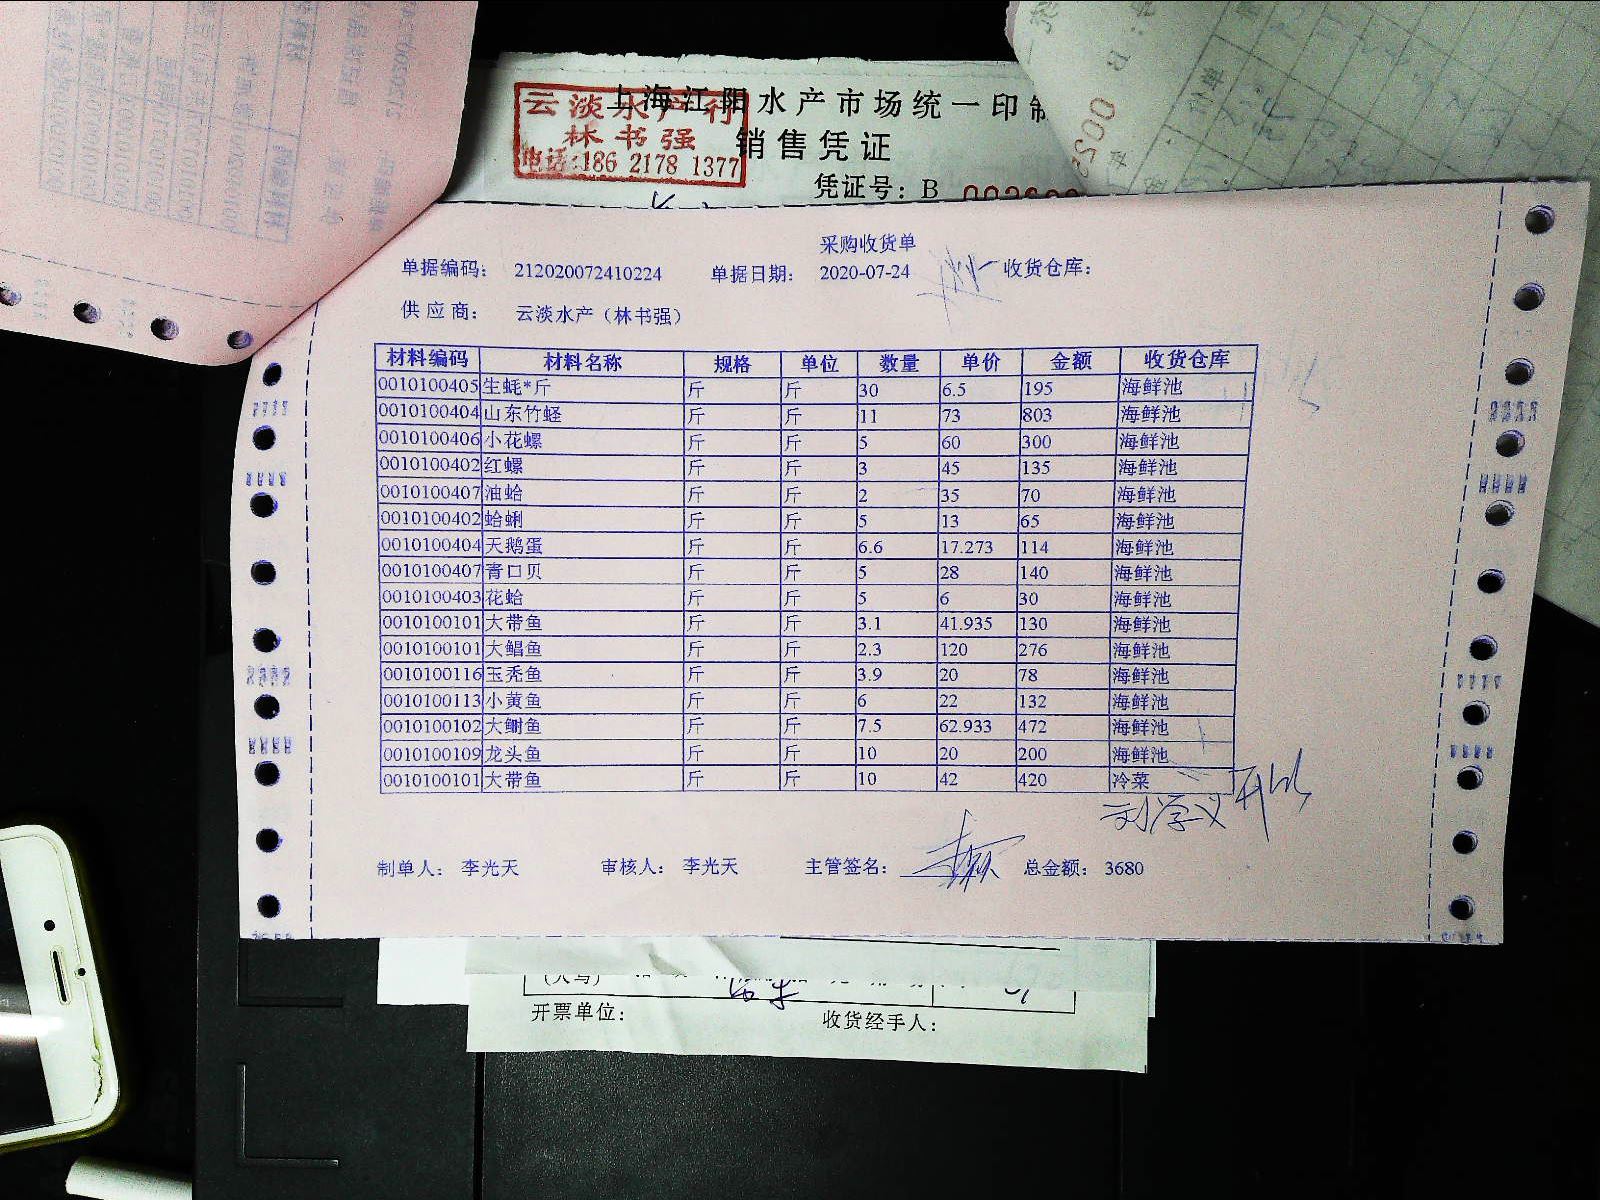 上海江阳水产市场统一印制
云淡水产行
林书强
电话:186 2178 1377
销售凭证
凭证号：B
采购收货单
单据编码： 212020072410224 单据日期： 2020-07-24 收货仓库：
供应商： 云淡水产（林书强）
材料编码 材料名称 规格 单位 数量 单价 金额 收货仓库
0010100405 生蚝*斤 斤 斤 30 6.5 195 海鲜池
0010100404 山东竹蛏 斤 斤 11 73 803 海鲜池
0010100406 小花螺 斤 斤 5 60 300 海鲜池
0010100402 红螺 斤 斤 3 45 135 海鲜池
0010100407 油蛤 斤 斤 2 35 70 海鲜池
0010100402 蛤蜊 斤 斤 5 13 65 海鲜池
0010100404 天鹅蛋 斤 斤 6.6 17.273 114 海鲜池
0010100407 青口贝 斤 斤 5 28 140 海鲜池
0010100403 花蛤 斤 斤 5 6 30 海鲜池
0010100101 大带鱼 斤 斤 3.1 41.935 130 海鲜池
0010100101 大鲳鱼 斤 斤 2.3 120 276 海鲜池
0010100116 玉秃鱼 斤 斤 3.9 20 78 海鲜池
0010100113 小黄鱼 斤 斤 6 22 132 海鲜池
0010100102 大鲥鱼 斤 斤 7.5 62.933 472 海鲜池
0010100109 龙头鱼 斤 斤 10 20 200 海鲜池
0010100101 大带鱼 斤 斤 10 42 420 冷菜
刘学义
制单人： 李光天 审核人： 李光天 主管签名： 总金额： 3680
开票单位： 收货经手人：